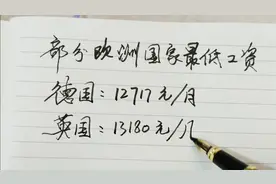 部分欧洲国家最低工资
德国：12717元/月
英国：13180元/月